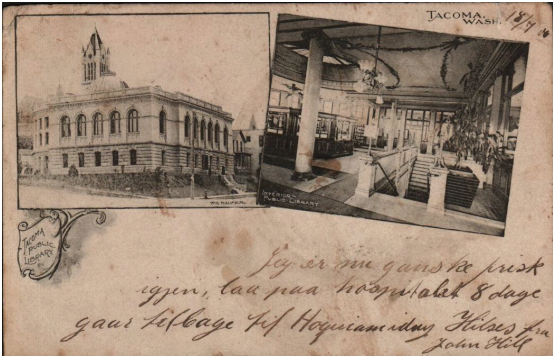 TACOMA,
WASH.
INTERIOR,
PUBLIC LIBRARY
TACOMA
PUBLIC
LIBRARY
Jeg er nu ganske frisk
igjen, laa paa hospitalet 8 dage
gaar tilbage til Hoquiam idag Hilses fra
John Hill